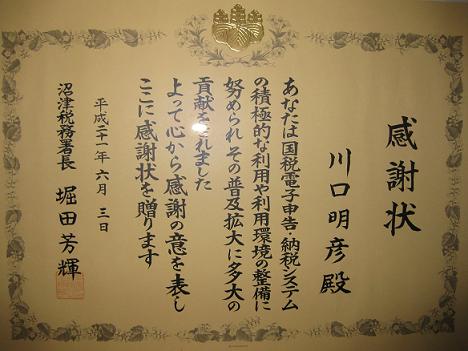 感謝状
川口明彦殿
あなたは国税電子申告・納税システム
の積極的な利用や利用環境の整備に
努められその普及拡大に多大の
貢献をされました
よって心から感謝の意を表し
ここに感謝状を贈ります
平成二十一年六月三日
沼津税務署長 堀田芳輝